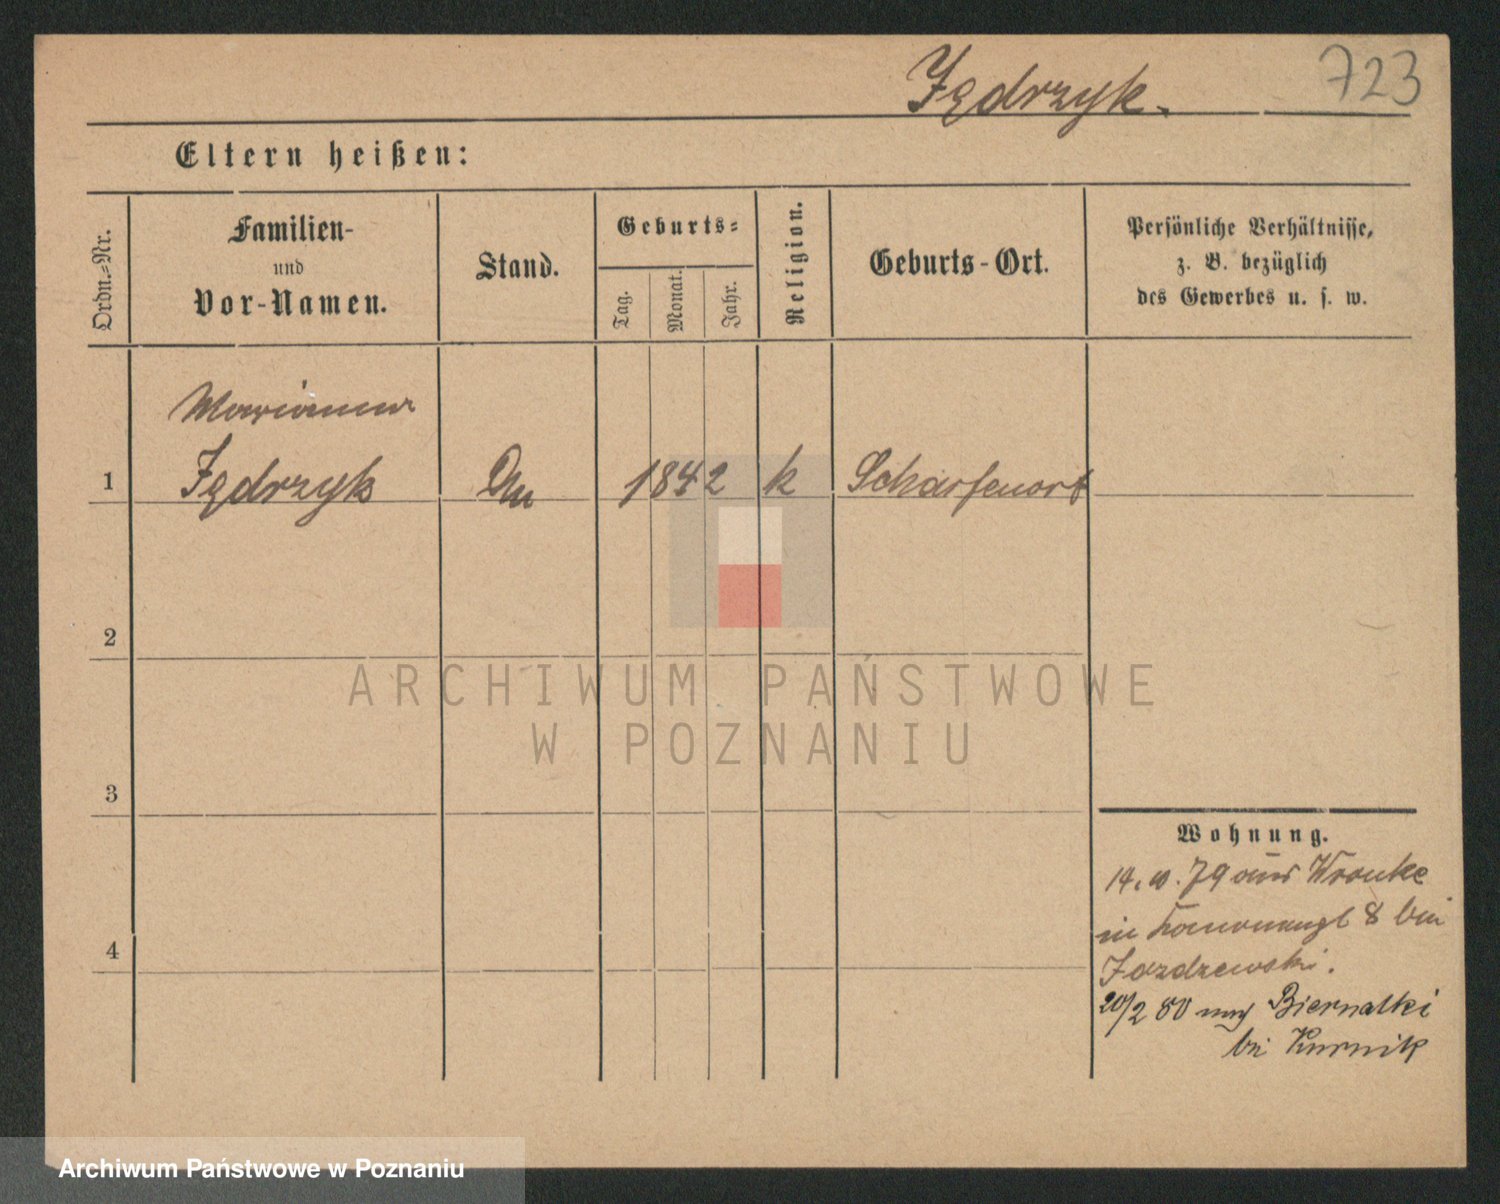 Jędrzyk.
723
Eltern heißen:
Ordn.=Nr.
Familien-
und
Vor-Namen.
Stand.
Geburts=
Tag.
Monat.
Jahr.
Religion.
Geburts-Ort.
Persönliche Verhältnisse,
z. B. bezüglich
des Gewerbes u. s. w.
Marianna
1 Jędrzyk 1842 k Scharfenort
2
3
4
Wohnung.
14. 10. 79 aus Wronke
in 8 bei
Jazdzewski.
20/2 80 nach Biernatki
bei Kurnik
ARCHIWUM PAŃSTWOWE
W POZNANIU
Archiwum Państwowe w Poznaniu